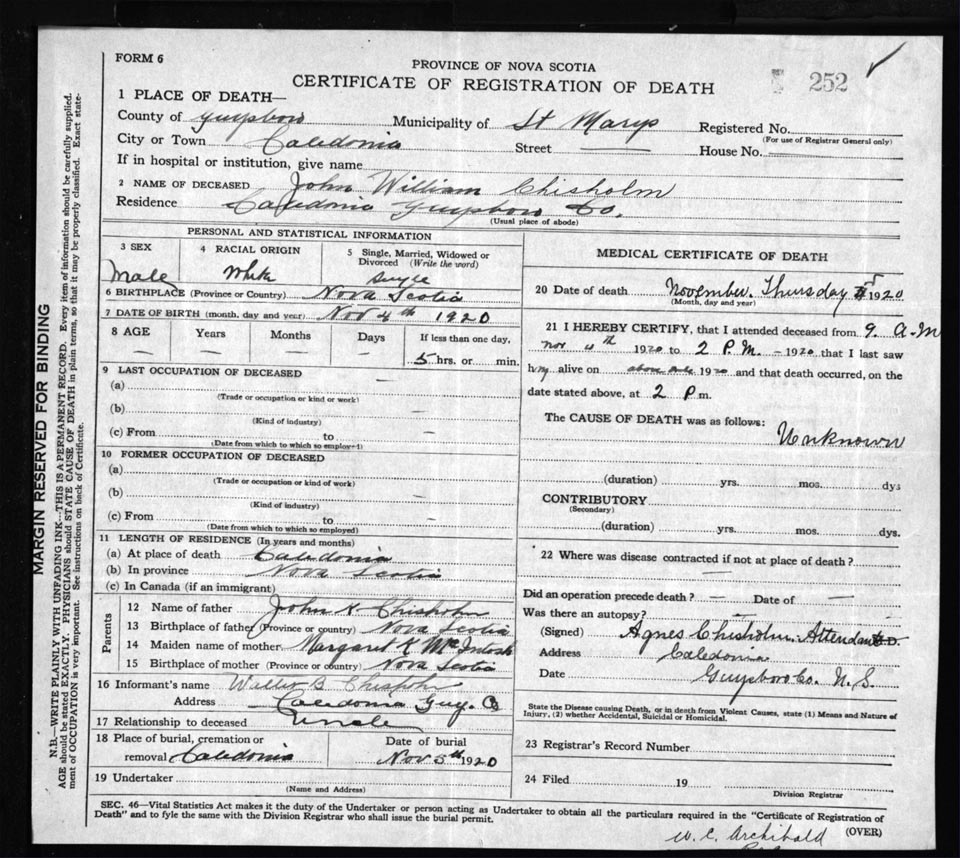 FORM 6
PROVINCE OF NOVA SCOTIA
CERTIFICATE OF REGISTRATION OF DEATH
252
1 PLACE OF DEATH—
County of Guysboro Municipality of St Marys Registered No.
(For use of Registrar General only)
City or Town Caledonia Street — House No. —
If in hospital or institution, give name
2 NAME OF DECEASED John William Chisholm
Residence Caledonia Guysboro Co.
(Usual place of abode)
PERSONAL AND STATISTICAL INFORMATION
3 SEX Male
4 RACIAL ORIGIN White
5 Single, Married, Widowed or Divorced (Write the word) Single
6 BIRTHPLACE (Province or Country) Nova Scotia
7 DATE OF BIRTH (month, day and year) Nov 4th 1920
8 AGE Years Months Days If less than one day,
— — — 5 hrs. or min.
9 LAST OCCUPATION OF DECEASED —
(a)
(Trade or occupation or kind of work)
(b) —
(Kind of industry)
(c) From to —
(Date from which to which so employed)
10 FORMER OCCUPATION OF DECEASED
(a)
(Trade or occupation or kind of work)
(b) —
(Kind of industry)
(c) From to —
(Date from which to which so employed)
11 LENGTH OF RESIDENCE (In years and months)
(a) At place of death Caledonia
(b) In province Nova Scotia
(c) In Canada (if an immigrant)
Parents
12 Name of father John K. Chisholm
13 Birthplace of father (Province or country) Nova Scotia
14 Maiden name of mother Margaret McIntosh
15 Birthplace of mother (Province or country) Nova Scotia
16 Informant's name B. Chisholm
Address Caledonia Guy. Co
17 Relationship to deceased Uncle
18 Place of burial, cremation or removal Caledonia
Date of burial Nov 5th 1920
19 Undertaker
(Name and Address)
MEDICAL CERTIFICATE OF DEATH
20 Date of death November. Thursday 1920
(Month, day and year)
21 I HEREBY CERTIFY, that I attended deceased from 9. A.M
Nov 4th 1920 to 2 P.M. — 1920 that I last saw
him alive on above date 1920 and that death occurred, on the
date stated above, at 2 P.m.
The CAUSE OF DEATH was as follows:
Unknown
(duration) yrs. mos. dys
CONTRIBUTORY
(Secondary)
(duration) yrs. mos. dys.
22 Where was disease contracted if not at place of death?
—
Did an operation precede death? — Date of —
Was there an autopsy? —
(Signed) Agnes Chisholm. Attendant
Address Caledonia
Date Guysboro Co. N.S.
State the Disease causing Death, or in death from Violent Causes, state (1) Means and Nature of
Injury, (2) whether Accidental, Suicidal or Homicidal.
23 Registrar's Record Number
24 Filed 19
Division Registrar
SEC. 46—Vital Statistics Act makes it the duty of the Undertaker or person acting as Undertaker to obtain all the particulars required in the "Certificate of Registration of
Death" and to fyle the same with the Division Registrar who shall issue the burial permit.
(OVER)
W. C. Archibald
MARGIN RESERVED FOR BINDING
N.B.—WRITE PLAINLY WITH UNFADING INK—THIS IS A PERMANENT RECORD. Every item of information should be carefully supplied.
AGE should be stated EXACTLY. PHYSICIANS should STATE CAUSE OF DEATH in plain terms, so that it may be properly classified. Exact state-
ment of OCCUPATION is very important. See instructions on back of Certificate.